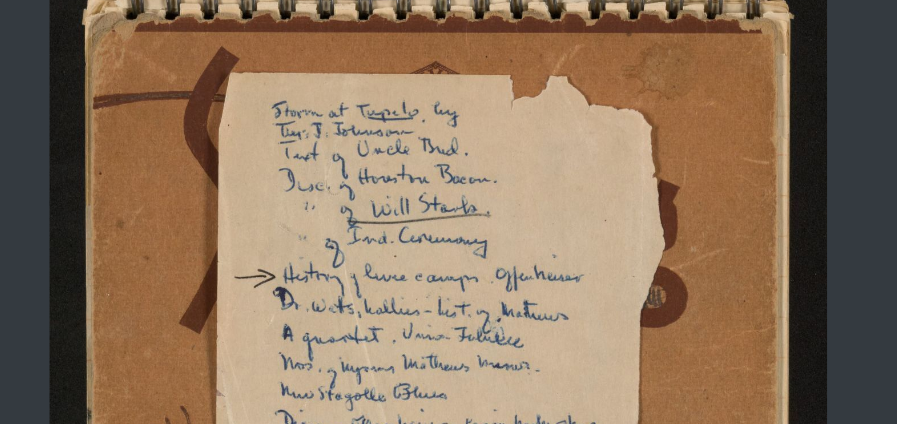 Storm at Tupelo, by
J. Johnson
Text of Uncle Bud.
Disc. of Houston Bacon.
" of Will Starks.
" of Ind. Ceremony
History of levee camps. Offenheiser
Dr. Watts, - hist. of Mathews
A quartet, Union Jubilee
Nos. of hymns Mathews
New Stagolee Blues